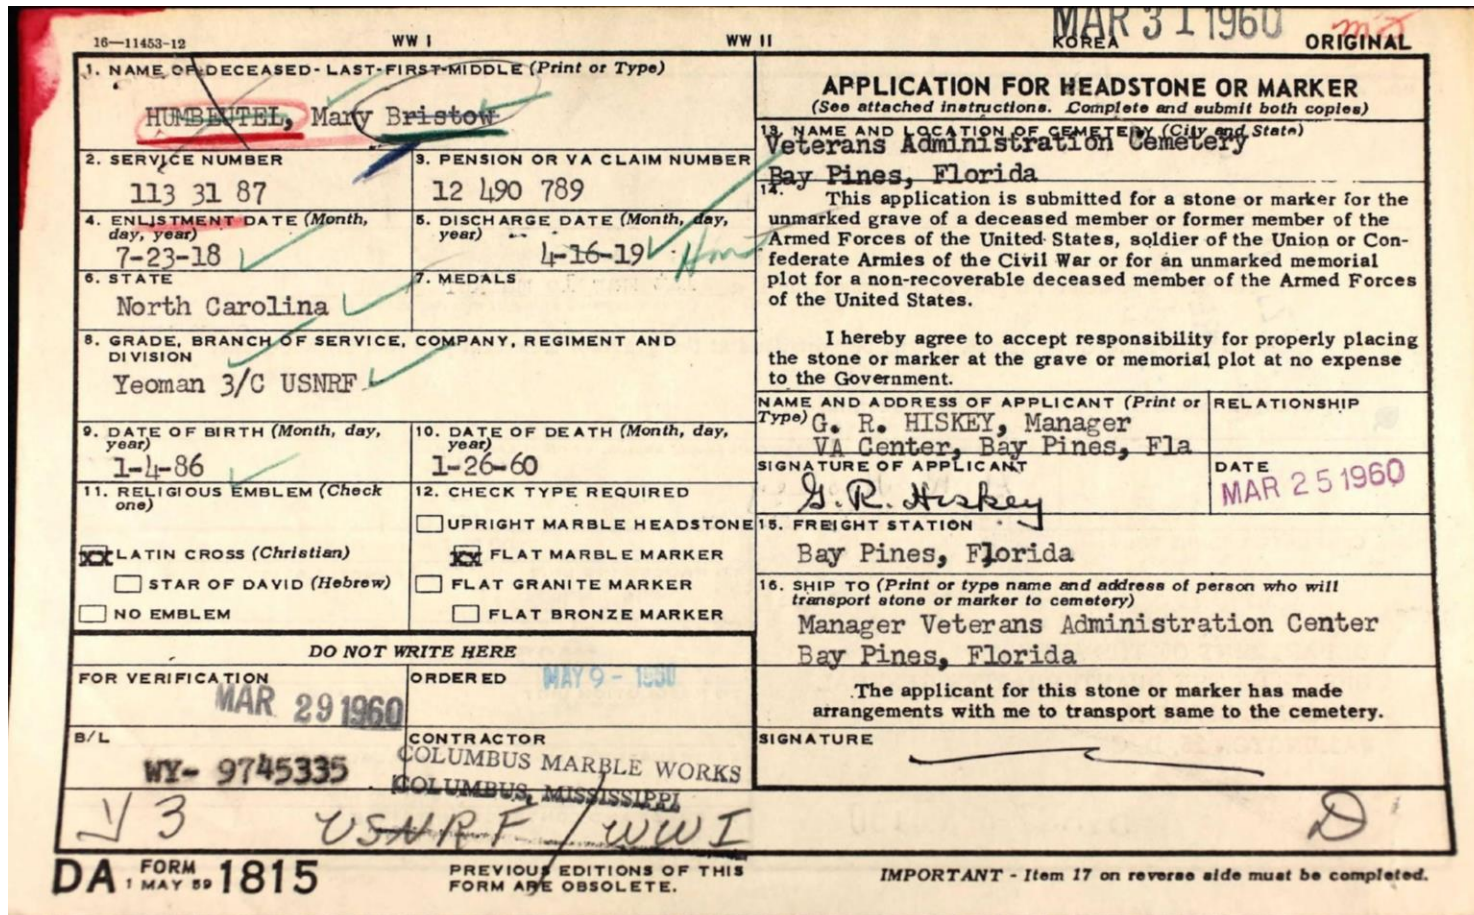 MAR 31 1960
16—11453-12 WW I WW II KOREA ORIGINAL
1. NAME OF DECEASED - LAST-FIRST-MIDDLE (Print or Type)
HUMBEUTEL, Mary Bristow
2. SERVICE NUMBER
113 31 87
3. PENSION OR VA CLAIM NUMBER
12 490 789
4. ENLISTMENT DATE (Month, day, year)
7-23-18
5. DISCHARGE DATE (Month, day, year)
4-16-19
Hon
6. STATE
North Carolina
7. MEDALS
8. GRADE, BRANCH OF SERVICE, COMPANY, REGIMENT AND
DIVISION
Yeoman 3/C USNRF
9. DATE OF BIRTH (Month, day, year)
1-4-86
10. DATE OF DEATH (Month, day, year)
1-26-60
11. RELIGIOUS EMBLEM (Check one)
XX LATIN CROSS (Christian)
STAR OF DAVID (Hebrew)
NO EMBLEM
12. CHECK TYPE REQUIRED
UPRIGHT MARBLE HEADSTONE
XX FLAT MARBLE MARKER
FLAT GRANITE MARKER
FLAT BRONZE MARKER
DO NOT WRITE HERE
FOR VERIFICATION
MAR 29 1960
ORDERED
MAY 9 - 1960
B/L
WY- 9745335
CONTRACTOR
COLUMBUS MARBLE WORKS
COLUMBUS, MISSISSIPPI
APPLICATION FOR HEADSTONE OR MARKER
(See attached instructions. Complete and submit both copies)
13. NAME AND LOCATION OF CEMETERY (City and State)
Veterans Administration Cemetery
Bay Pines, Florida
14. This application is submitted for a stone or marker for the
unmarked grave of a deceased member or former member of the
Armed Forces of the United States, soldier of the Union or Con-
federate Armies of the Civil War or for an unmarked memorial
plot for a non-recoverable deceased member of the Armed Forces
of the United States.
I hereby agree to accept responsibility for properly placing
the stone or marker at the grave or memorial plot at no expense
to the Government.
NAME AND ADDRESS OF APPLICANT (Print or
Type) G. R. HISKEY, Manager
VA Center, Bay Pines, Fla
RELATIONSHIP
SIGNATURE OF APPLICANT
G. R. Hiskey
DATE
MAR 25 1960
15. FREIGHT STATION
Bay Pines, Florida
16. SHIP TO (Print or type name and address of person who will
transport stone or marker to cemetery)
Manager Veterans Administration Center
Bay Pines, Florida
The applicant for this stone or marker has made
arrangements with me to transport same to the cemetery.
SIGNATURE
V 3 USNRF / WWI D
DA FORM 1 MAY 59 1815
PREVIOUS EDITIONS OF THIS
FORM ARE OBSOLETE.
IMPORTANT - Item 17 on reverse side must be completed.